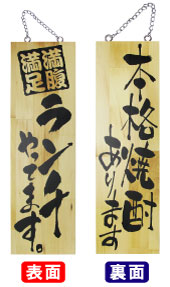 満腹
満足
ランチ
やってます。
本格焼酎
あります
表面
裏面